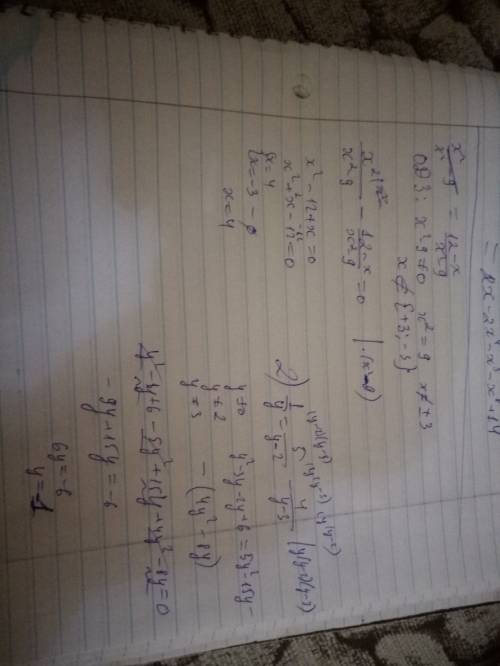 = 12x - 2x² - x³ - x² + 24
x²/(x²-9) = (12-x)/(x²-9)
ОДЗ: x²-9≠0 x²=9 x≠±3
x ≠ {+3; -3}
x²/(x²-9) - (12-x)/(x²-9) = 0 | ·(x²-9)
x² - 12 + x = 0
x² + x - 12 = 0
{x = 4
{x = -3 - ø
x = 4
2) 1/y = 5/(y-2) - 4/(y-3) | y(y-2)(y-3)
y≠0
y≠2
y≠3
y²-3y-2y+6 = 5y²-15y-
-(4y²-8y)
y²-5y+6-5y²+15y+4y²-8y=0
-9y+15y=-6
6y=-6
y=-1